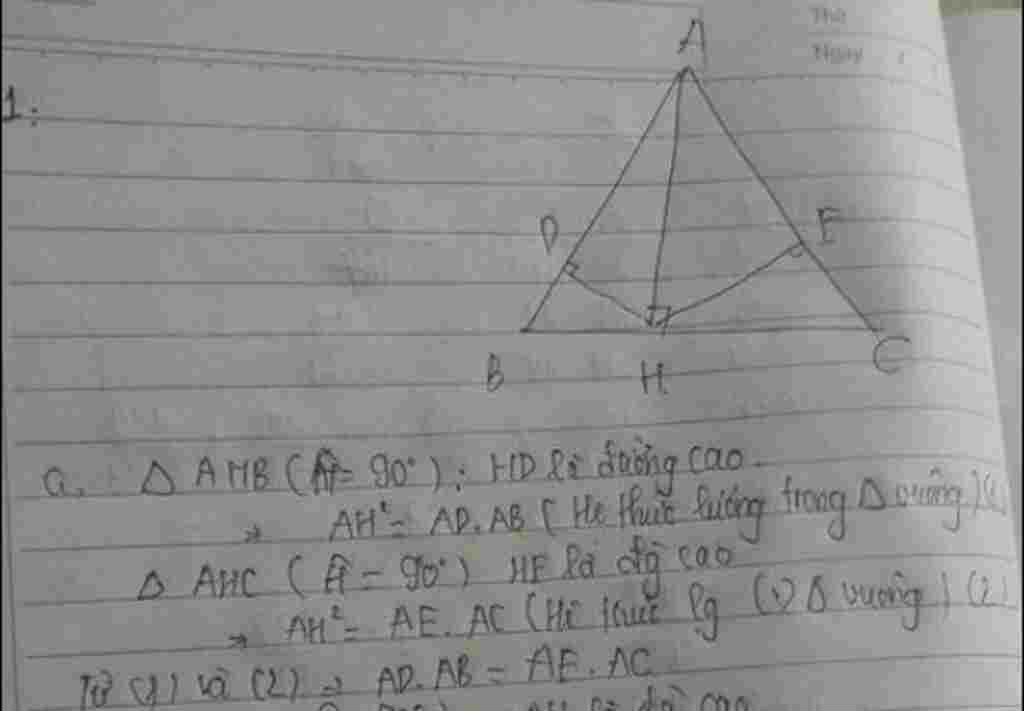 Thứ
Ngày
1:
A
D
E
B
H
C
a. Δ AHB (Ĥ = 90°): HD là đường cao.
→ AH² = AD.AB (Hệ thức lường trong Δ vuông) (1)
Δ AHC (Ĥ = 90°) HE là đg cao
→ AH² = AE.AC (Hệ thức lg (v) Δ vuông) (2)
Từ (1) và (2) → AD.AB = AE.AC
AH là đg cao